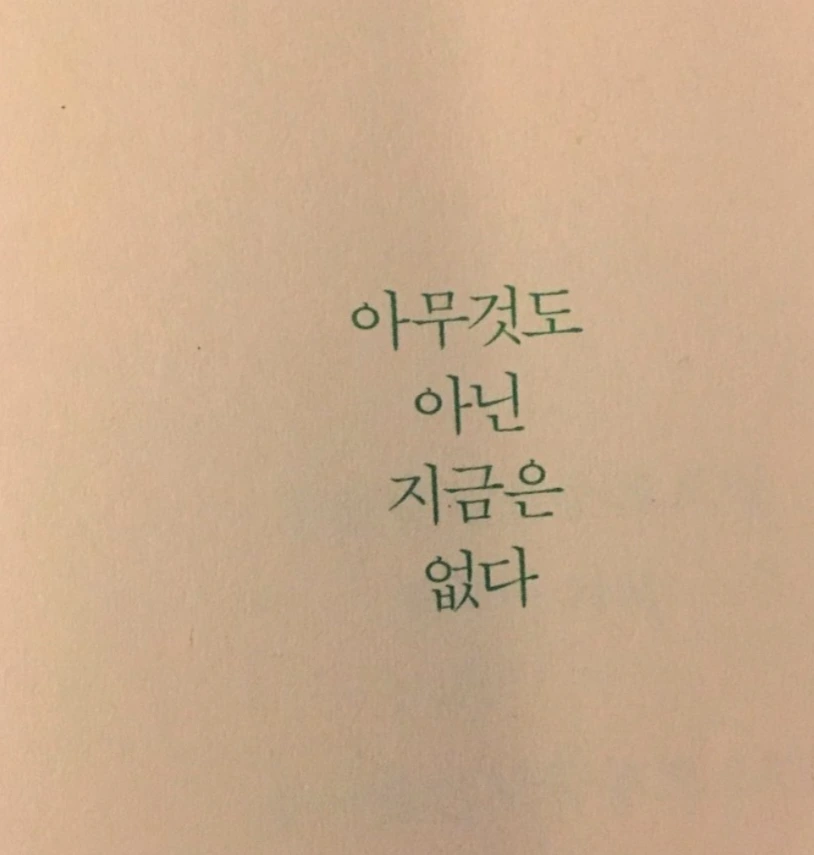 아무것도
아닌
지금은
없다